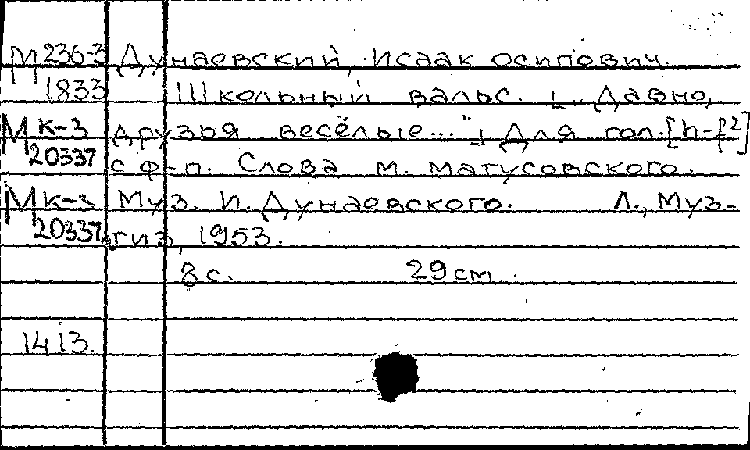 М 236-3 Дунаевский, Исаак Осипович.
1833 Школьный вальс. [„Давно,
М к-3 друзья весёлые..."] Для гол. [h-f²]
20337 с ф-п. Слова М. Матусовского.
М к-3 Муз. И. Дунаевского. Л., Муз-
20337 гиз, 1953.
8 с. 29 см.
1413.